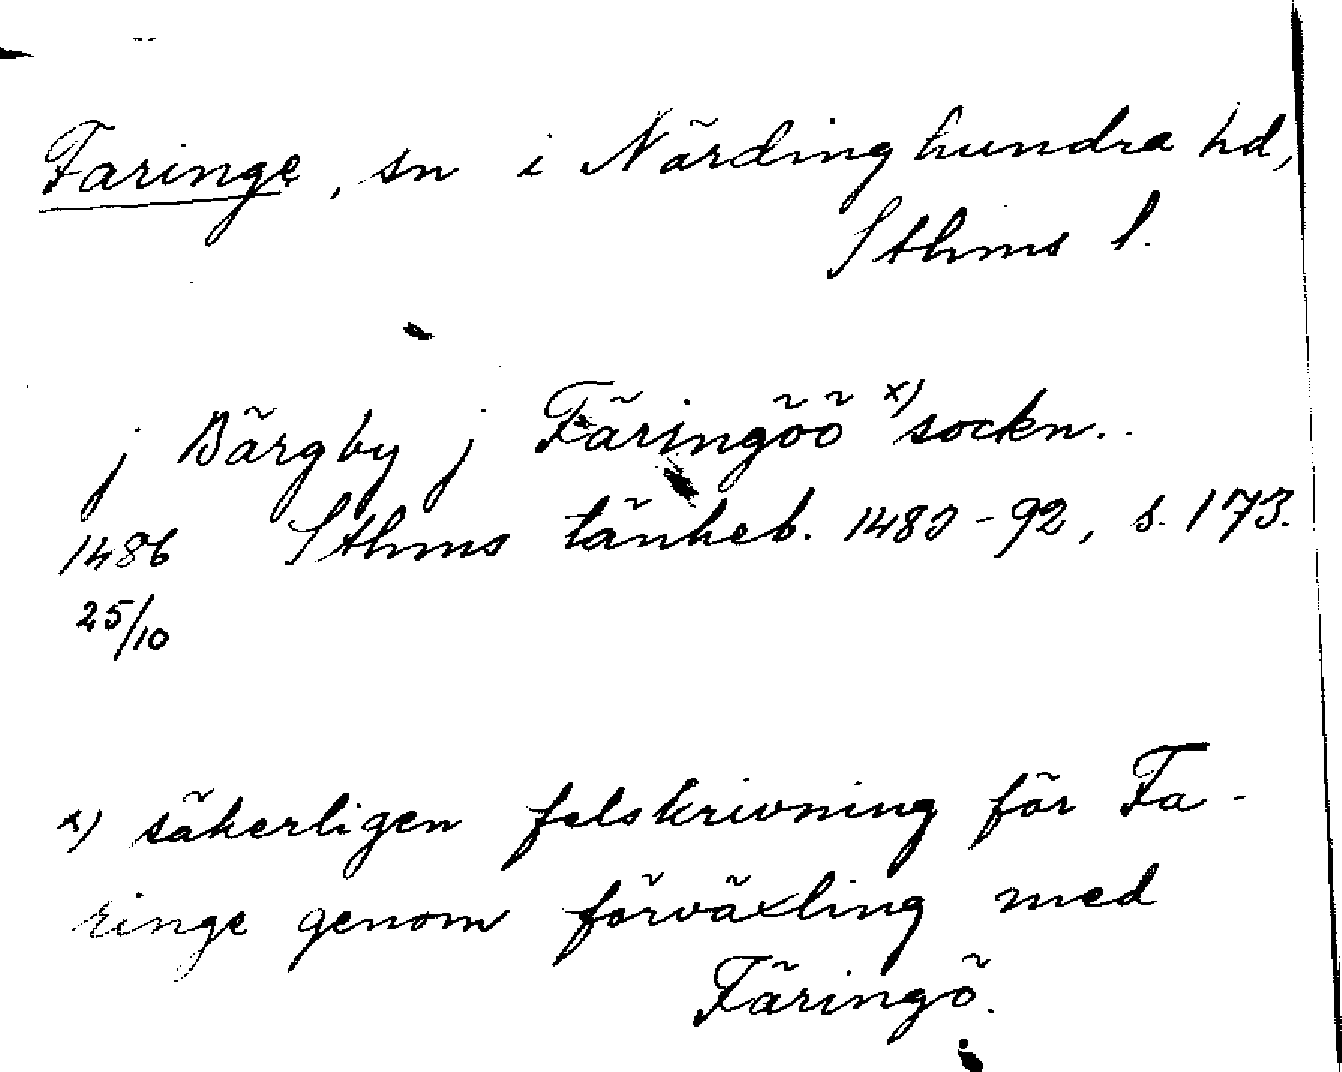 Faringe, sn i Närdinghundra hd,
Sthms l.
j Bärgby j Färingöö x) sockn..
1486 Sthms tänkeb. 1483-92, s. 173.
25/10
x) säkerligen felskrivning för Fa-
ringe genom förväxling med
Färingö.